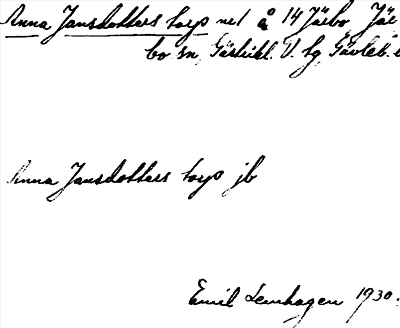 Anna Jansdotters torp nel å 14 Järbo Jär
bo sn, Gästrikl. V. hg, Gävleb. l
Anna Jansdotters torp jb
Emil Lenhagen 1930.